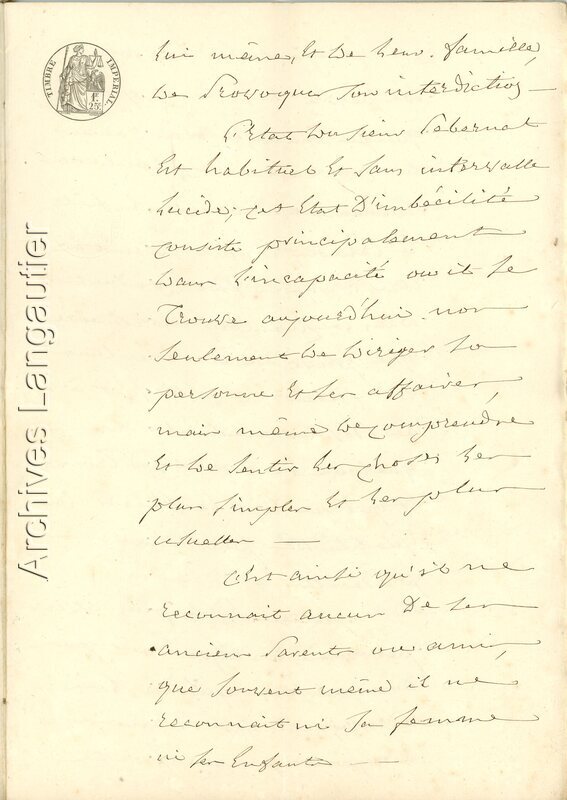 TIMBRE IMPERIAL
1F 25c
lui même, et de leur famille,
de provoquer son interdiction —
L'Etat du sieur
Est habituel et sans intervalle
lucide; cet Etat D'imbécilité
consiste principalement
dans l'incapacité ou il se
Trouve aujourd'hui non
seulement de diriger sa
personne et ses affaires,
mais même de comprendre
Et de sentir les choses les
plus simples et les plus
usuelles —
C'est ainsi qu'il ne
reconnait aucun De ses
anciens Parents ou amis,
que souvent même il ne
reconnait ni sa femme
ni ses Enfants —
Archives Langautier